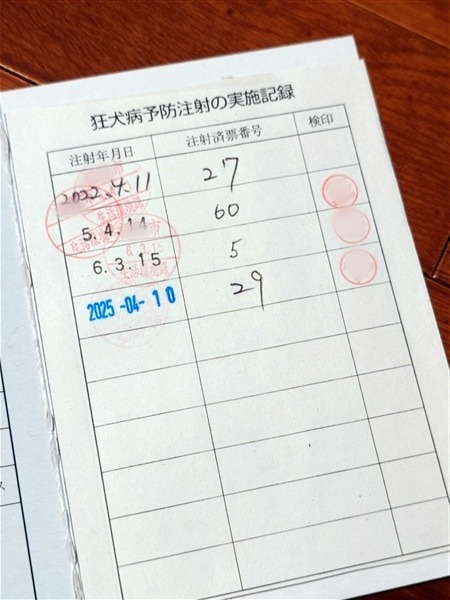 狂犬病予防注射の実施記録
注射年月日 注射済票番号 検印
2022.4.11 27
5.4.14 60
6.3.15 5
2025-04-10 29